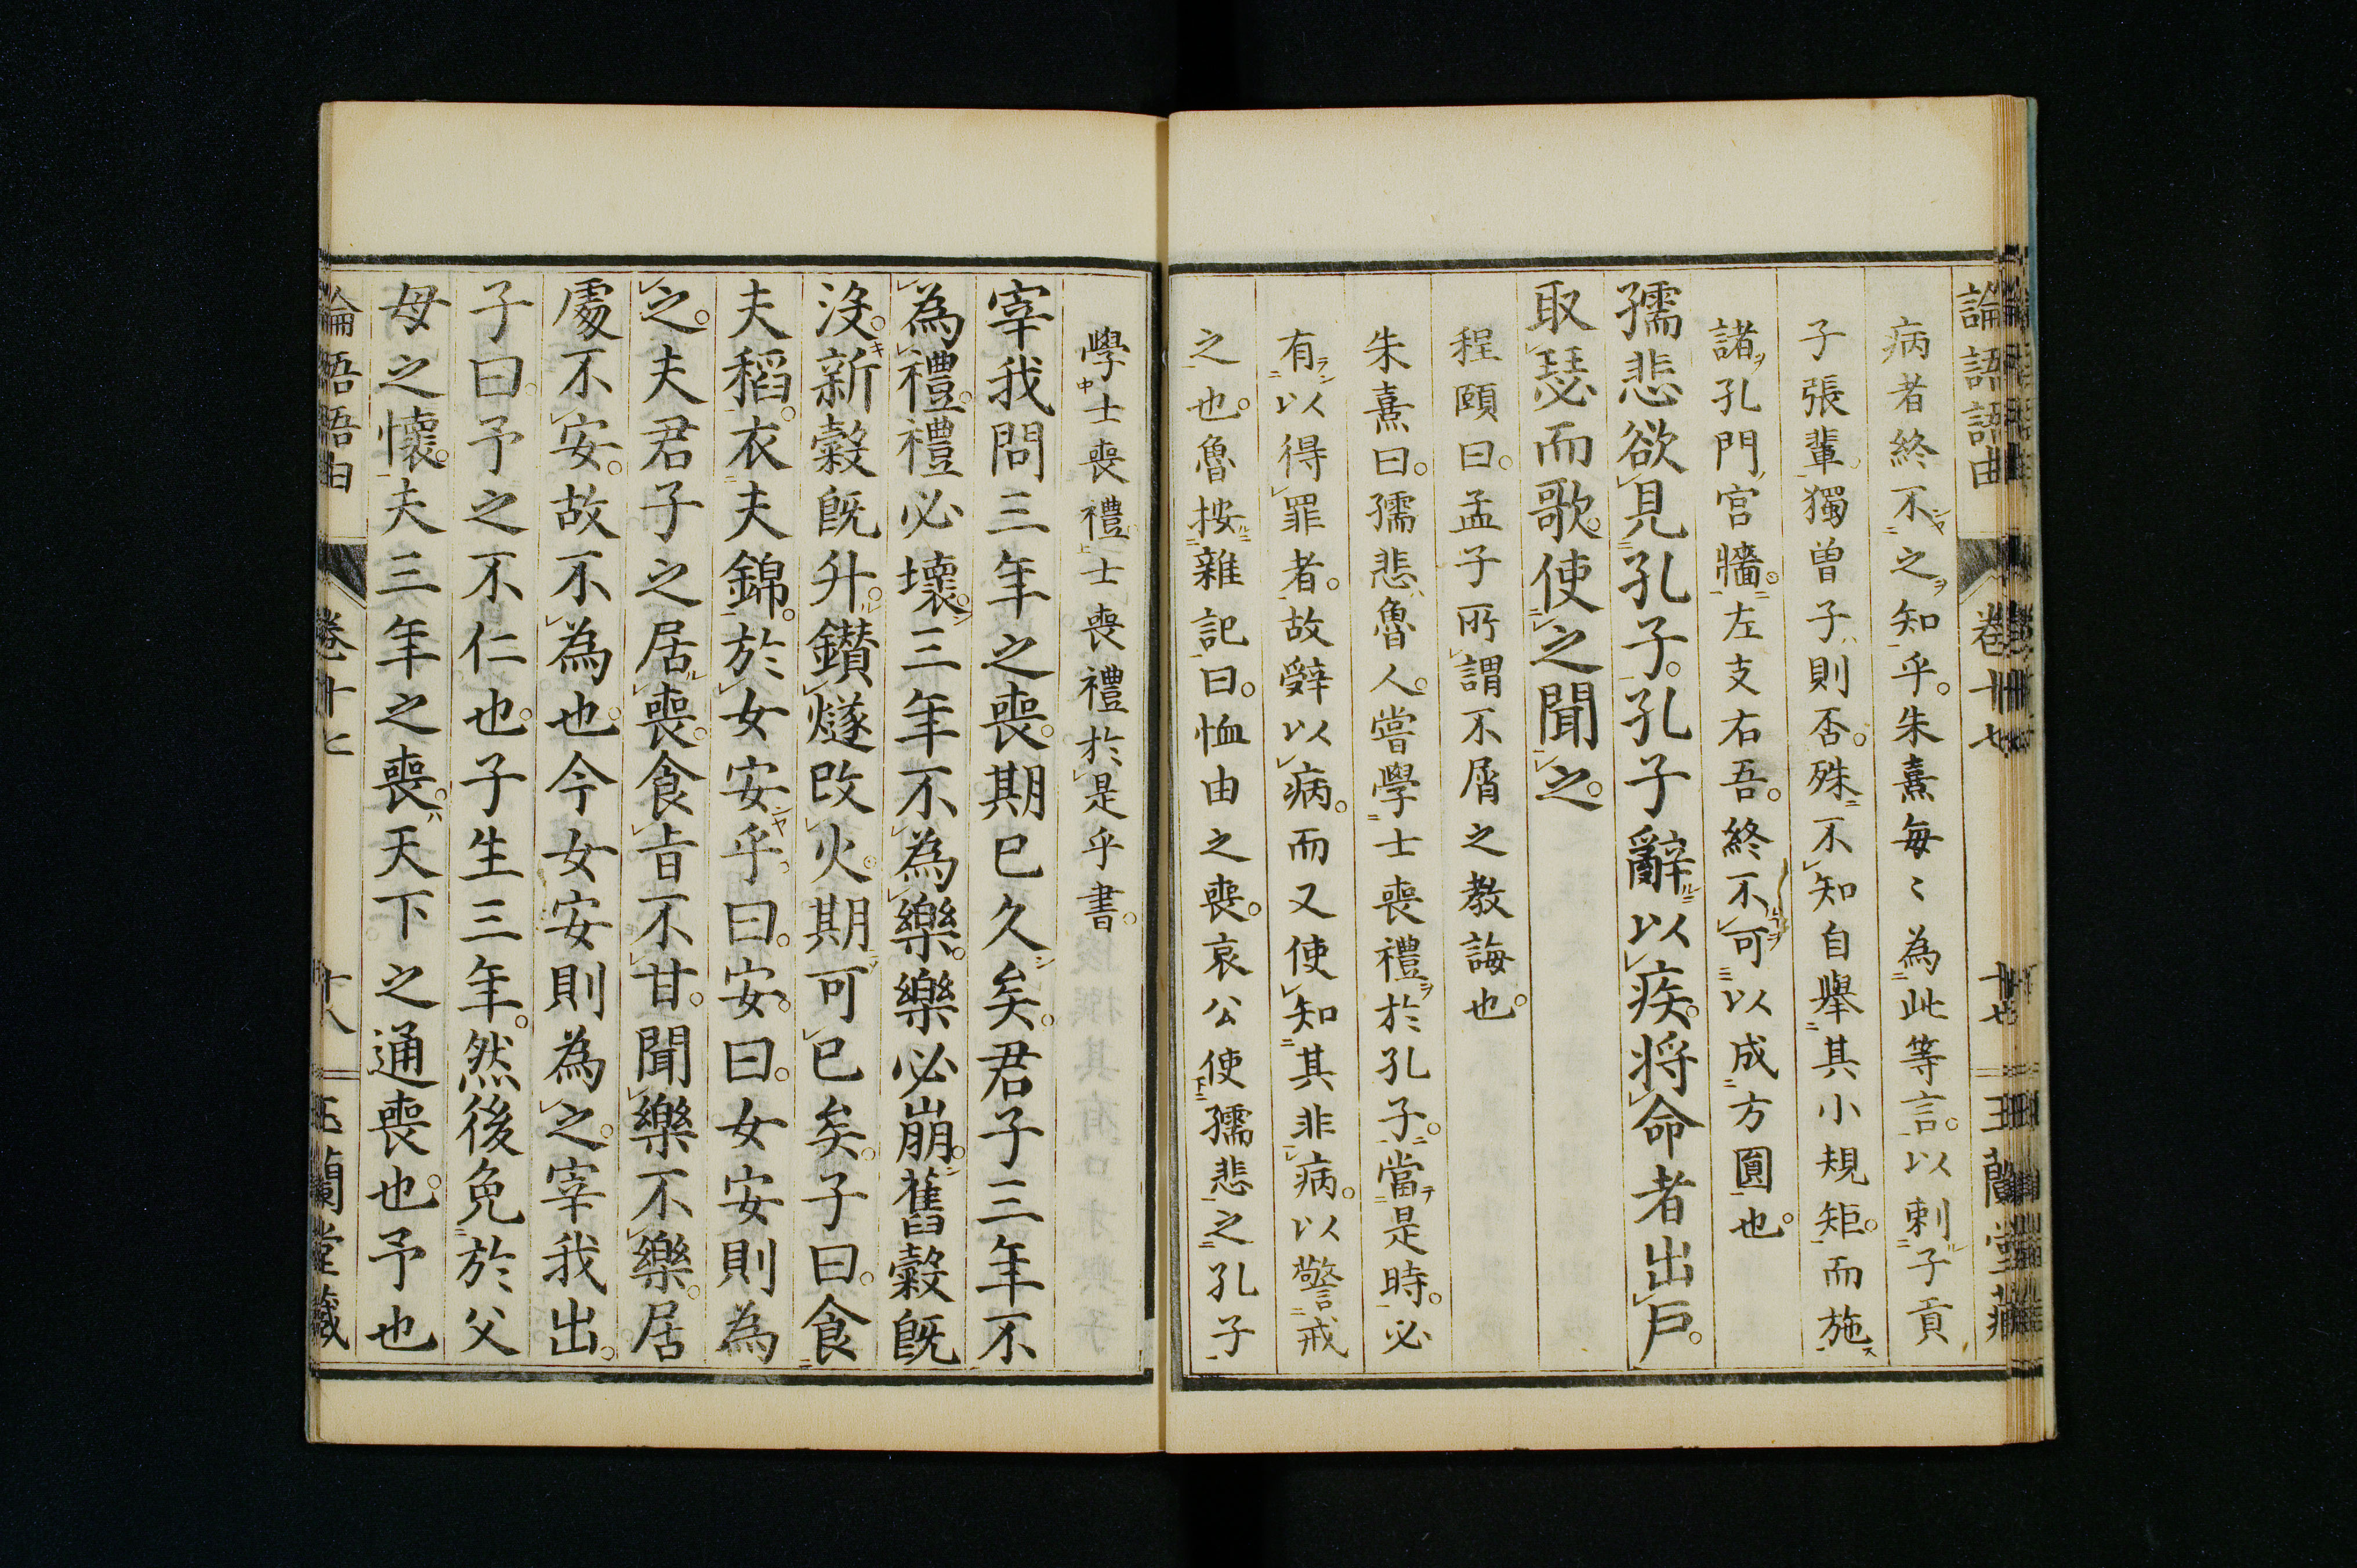 論語語由 卷十七 玉蘭堂藏
病者終不之知乎。朱熹每〻為此等言。以刺子貢
子張輩。獨曾子則否。殊不知自舉其小規矩。而施
諸孔門宮牆。左支右吾。終不可以成方圓也。
孺悲欲見孔子。孔子辭以疾。将命者出户。
取瑟而歌。使之聞之。
程頤曰。孟子所謂不屑之教誨也。
朱熹曰。孺悲魯人。嘗學士喪禮於孔子。當是時。必
有以得罪者。故辤以病。而又使知其非病。以警戒
之也。魯按雜記曰。恤由之喪。哀公使孺悲之孔子
學士喪禮士喪禮於是乎書。
宰我問三年之喪。期已久矣。君子三年不
為禮。禮必壞。三年不為樂。樂必崩。舊穀既
沒。新穀既升。鑚燧改火。期可已矣。子曰。食
夫稻。衣夫錦。於女安乎。曰。安。曰。女安則為
之。夫君子之居喪。食旨不甘。聞樂不樂。居
處不安。故不為也。今女安則為之。宰我出。
子曰。予之不仁也。子生三年。然後免於父
母之懷。夫三年之喪。天下之通喪也。予也
論語語由 卷十七 十八 玉蘭堂藏